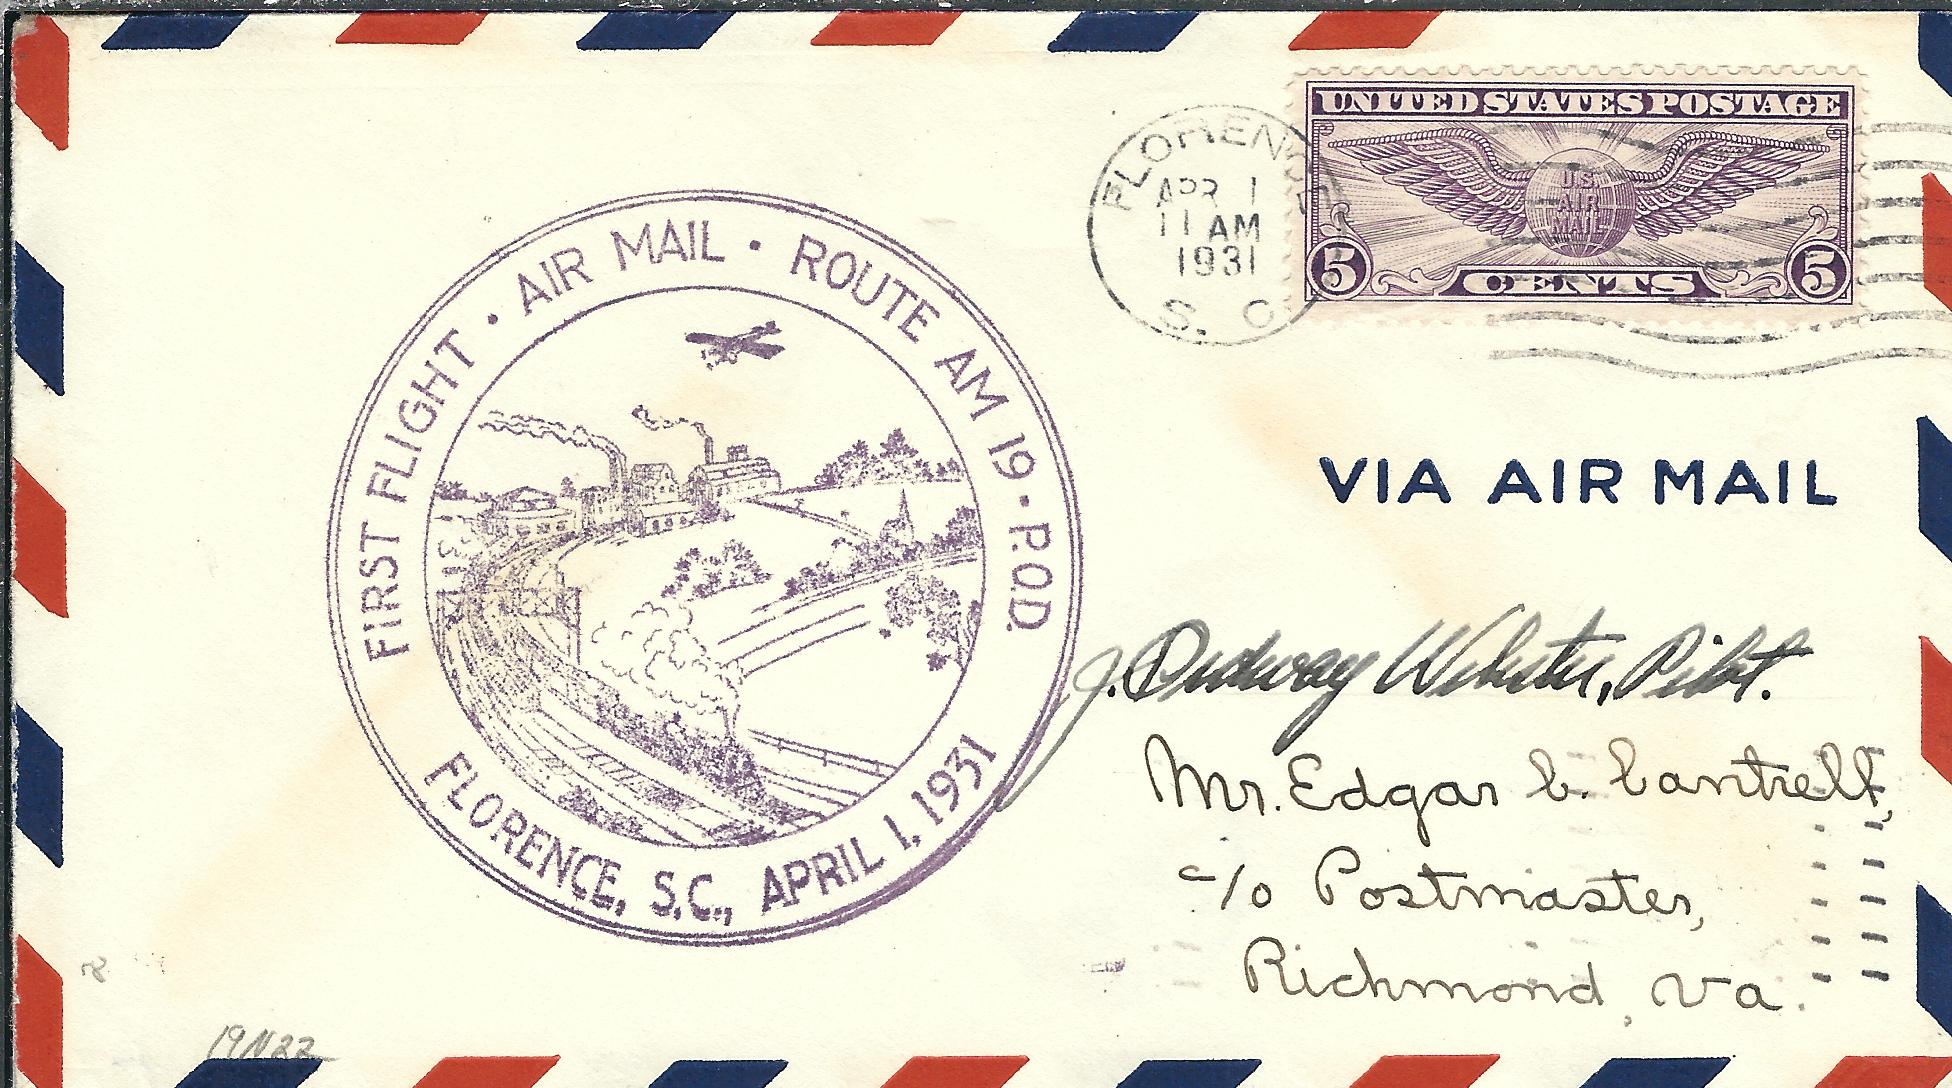 UNITED STATES POSTAGE
U.S.
AIR
MAIL
5 CENTS 5
FLORENCE
APR 1
11 AM
1931
S. C.
FIRST FLIGHT · AIR MAIL · ROUTE AM 19 · P.O.D.
FLORENCE, S.C., APRIL 1, 1931
VIA AIR MAIL
J. Ridway Webster, Pilot.
Mr. Edgar C. Cantrell,
c/o Postmaster,
Richmond, Va.
19N22